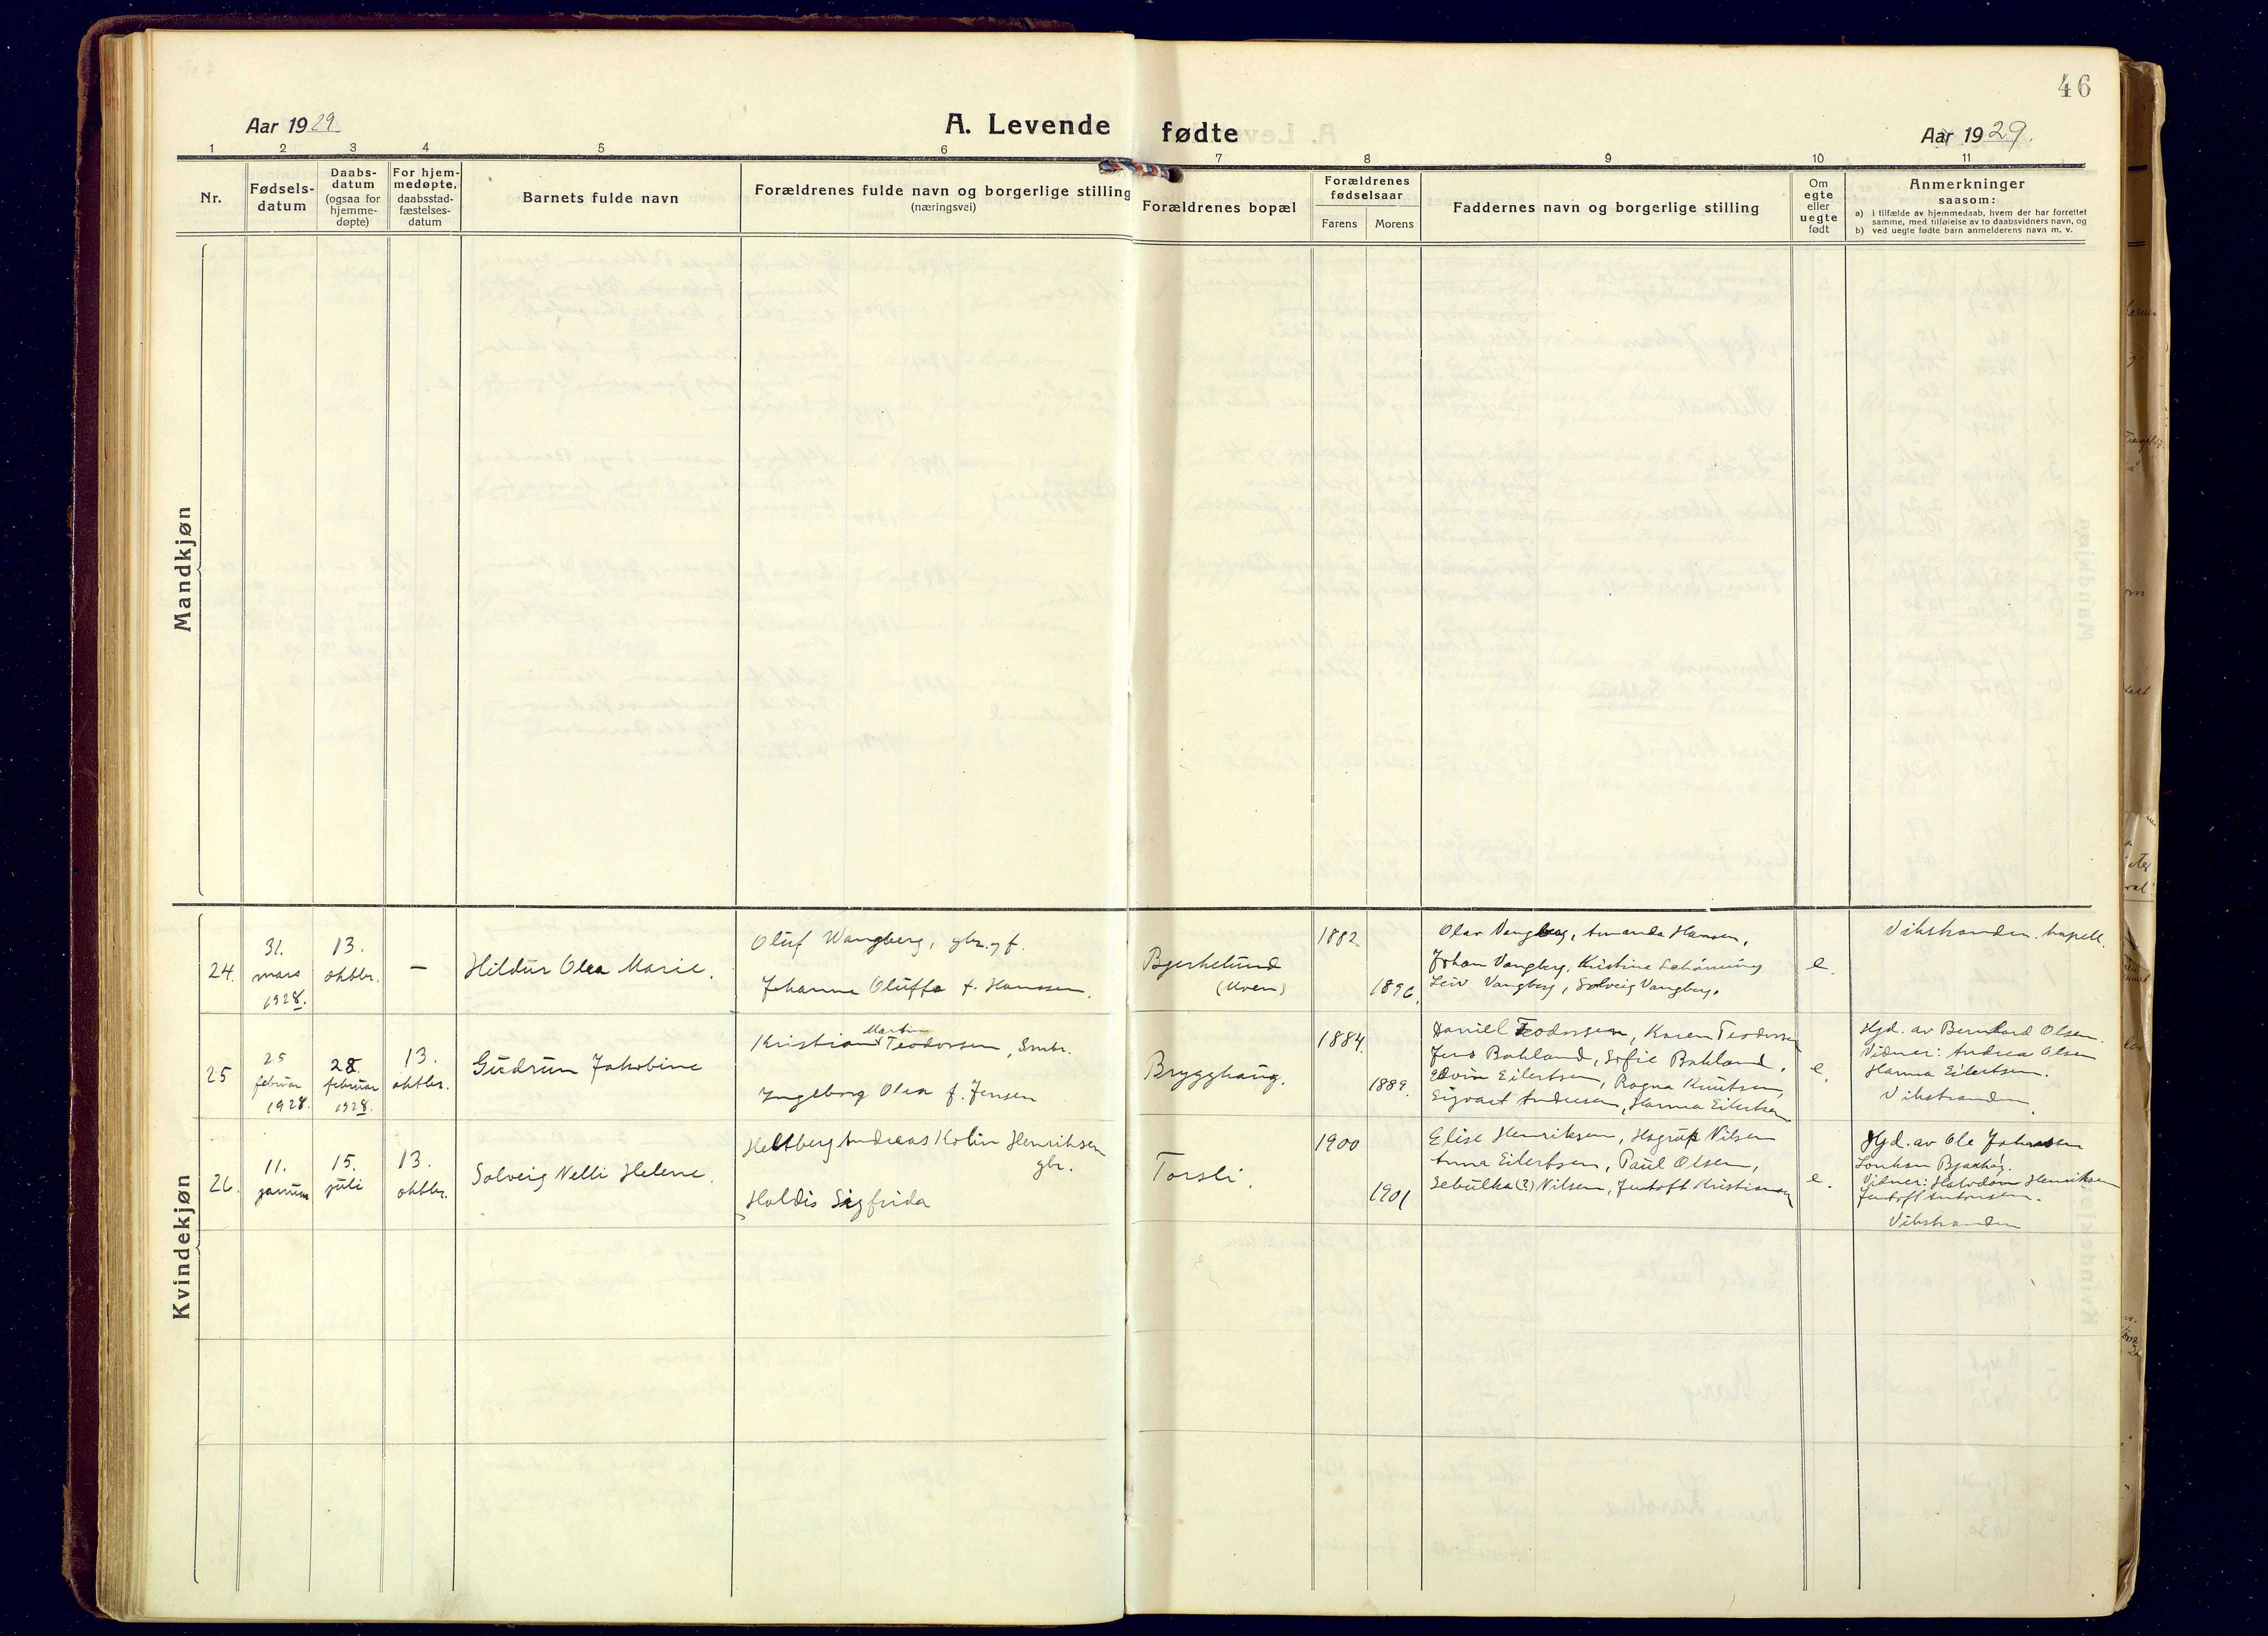 46
Aar 1929
A. Levende fødte
Aar 1929.
1 2 3 4 5 6 7 8 9 10 11
Nr.
Fødsels-
datum
Daabs-
datum
(ogsaa for
hjemme-
døpte)
For hjem-
medøpte,
daabsstad-
fæstelses-
datum
Barnets fulde navn
Forældrenes fulde navn og borgerlige stilling
(næringsvei)
Forældrenes bopæl
Forældrenes
fødselsaar
Farens
Morens
Faddernes navn og borgerlige stilling
Om
egte
eller
uegte
født
Anmerkninger
saasom:
a) i tilfælde av hjemmedaab, hvem der har forrettet
samme, med tilføielse av to daabsvidners navn, og
b) ved uegte fødte barn anmelderens navn m. v.
Mandkjøn
Kvindekjøn
24.
31.
mars
1928.
13.
oktbr.
—
Hildur Olea Marie.
Oluf Wangberg, gbr. og f.
Johanne Oluffa f. Hanssen.
Bjerkelund
(Moen)
1882
1896.
Olav Vangberg, Amanda Hansen,
Johan Vangberg, Kristine Schönning
Leiv Vangberg, Solveig Vangberg.
e.
Vikstranden kapell.
25
25
februar
1928.
28.
februar
1928.
13.
oktbr.
Gudrun Jakobine
Martin
Kristian Teodorsen, Smbr.
Ingeborg Olea f. Jensen
Brygghaug.
1884.
1889.
Daniel Teodorsen, Karen Teodorsen
Jens Bakland, Sofie Bakland,
Edvin Eilertsen, Ragna Knutsen,
Sigvart Andresen, Hanna Eilertsen
e.
Hjd. av Bernhard Olsen.
Vidner: Andrea Olsen
Hanna Eilertsen.
Vikstranden
26.
11.
januar
15.
juli
13.
oktbr.
Solveig Nelli Helene.
Heltberg Andreas Kolin Henriksen
gbr.
Haldis Sigfrida
Torsli.
1900
1901
Elise Henriksen, Hagrup Nilsen
Anna Eilertsen, Paul Olsen,
(?) Nilsen, Jentoft Kristiansen
e.
Hjd. av Ole
Vidner: Halvdan Henriksen
Jentoft Antonsen.
Vikstranden